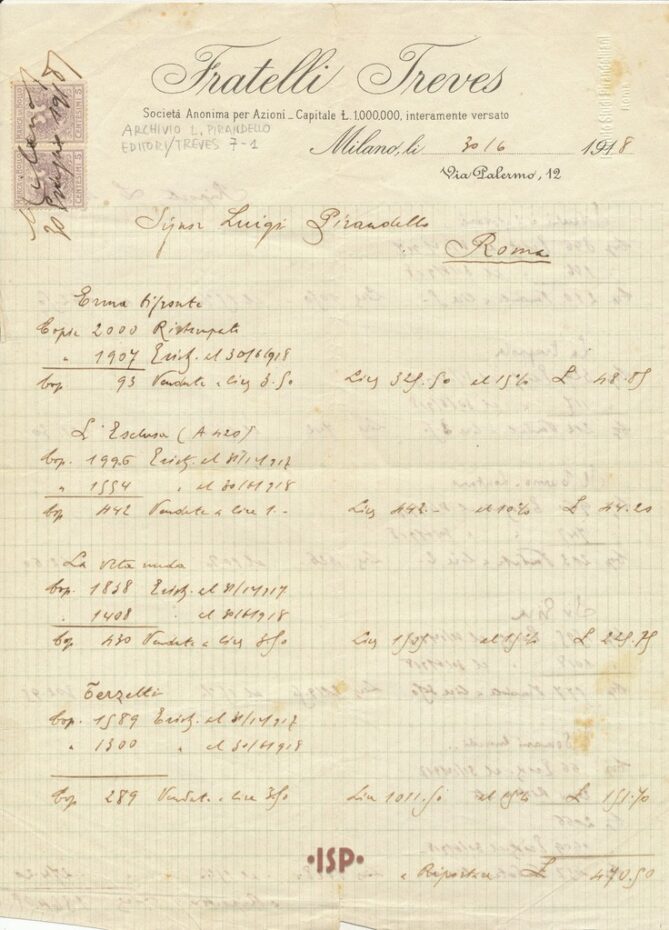 Fratelli Treves
Società Anonima per Azioni - Capitale Ł. 1.000,000, interamente versato
ARCHIVIO L. PIRANDELLO
EDITORI/TREVES 7-1
Milano, li 30/6 1918
Via Palermo, 12
Signor Luigi Pirandello
Roma
Erma bifronte
Copie 2000 Ristampate
" 1907 Esist. al 30/6/918
Cop 93 Vendute a Lire 3.50 Lire 325.50 al 15% £ 48.85
L'Esclusa (A 420)
Cop. 1996 Esist. al 31/12/917
" 1554 " al 30/6/918
Cop 442 Vendute a Lire 1.- Lire 442.- al 10% £ 44.20
La vita nuda
Cop. 1838 Esist. al 31/12/917
" 1408 " al 30/6/918
Cop. 430 Vendute a Lire 3.50 Lire 1505 al 15% £ 225.75
Terzetti
Cop. 1589 Esist. al 31/12/917
" 1300 " al 30/6/918
Cop 289 Vendute a Lire 3.50 Lire 1011.50 al 15% £ 151.70
•ISP•
a Riportare £ 470.50